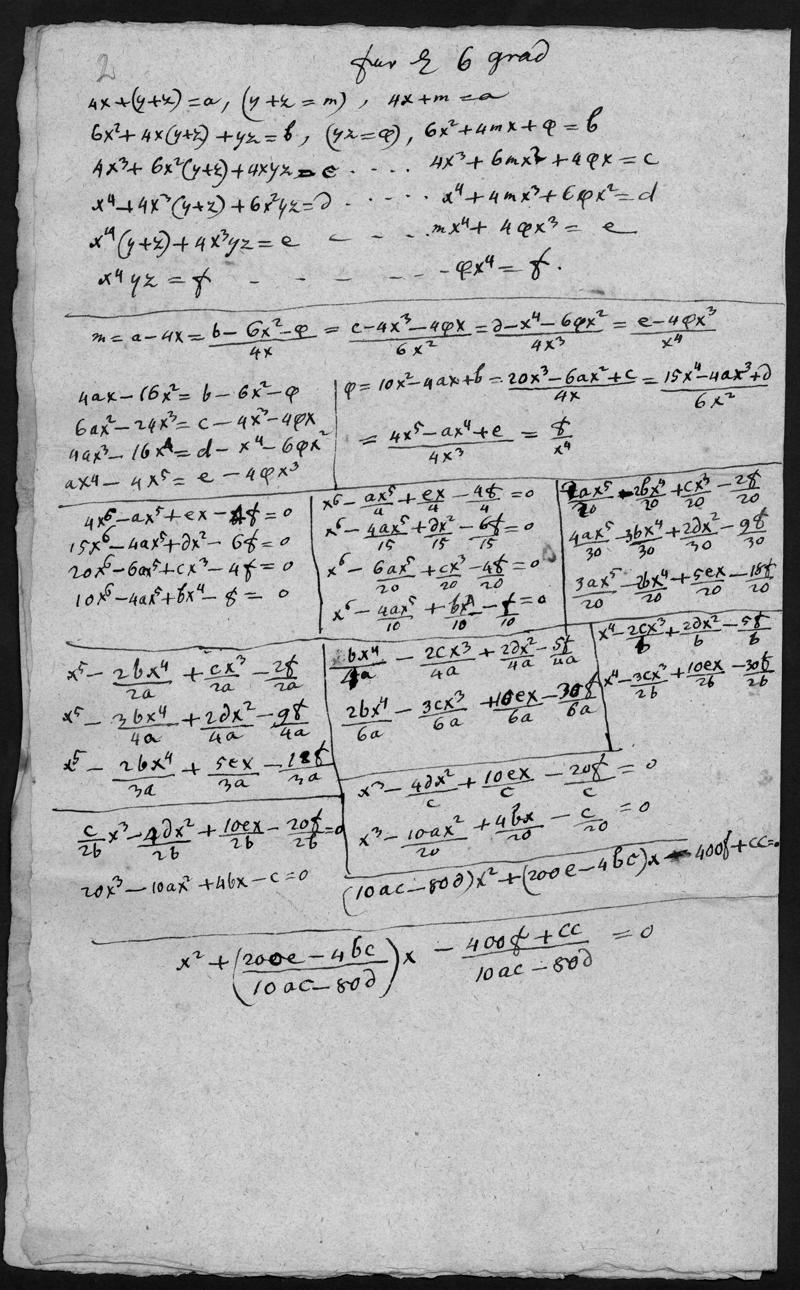 2
für 6 grad
4x+(y+z)=a, (y+z=m), 4x+m=a
6x²+4x(y+z)+yz=b, (yz=φ), 6x²+4mx+φ=b
4x³+6x²(y+z)+4xyz=c .... 4x³+6mx²+4φx=c
x⁴+4x³(y+z)+6x²yz=d ..... x⁴+4mx³+6φx²=d
x⁴(y+z)+4x³yz=e - - - . mx⁴+4φx³=e
x⁴yz=f - - - - - - - φx⁴=f.
m=a-4x=(b-6x²-φ)/4x=(c-4x³-4φx)/6x²=(d-x⁴-6φx²)/4x³=(e-4φx³)/x⁴
4ax-16x²=b-6x²-φ
6ax²-24x³=c-4x³-4φx
4ax³-16x⁴=d-x⁴-6φx²
ax⁴-4x⁵=e-4φx³
φ=10x²-4ax+b=(20x³-6ax²+c)/4x=(15x⁴-4ax³+d)/6x²
=(4x⁵-ax⁴+e)/4x³=f/x⁴
4x⁶-ax⁵+ex-4f=0
15x⁶-4ax⁵+dx²-6f=0
20x⁶-6ax⁵+cx³-4f=0
10x⁶-4ax⁵+bx⁴-f=0
x⁶-ax⁵/4+ex/4-4f/4=0
x⁶-4ax⁵/15+dx²/15-6f/15=0
x⁶-6ax⁵/20+cx³/20-4f/20=0
x⁶-4ax⁵/10+bx⁴/10-f/10=0
2ax⁵/20-2bx⁴/20+cx³/20-2f/20
4ax⁵/30-3bx⁴/30+2dx²/30-9f/30
3ax⁵/20-2bx⁴/20+5ex/20-18f/20
x⁵-2bx⁴/2a+cx³/2a-2f/2a
x⁵-3bx⁴/4a+2dx²/4a-9f/4a
x⁵-2bx⁴/3a+5ex/3a-18f/3a
bx⁴/4a-2cx³/4a+2dx²/4a-5f/4a
2bx⁴/6a-3cx³/6a+10ex/6a-30f/6a
x⁴-2cx³/b+2dx²/b-5f/b
x⁴-3cx³/2b+10ex/2b-30f/2b
c/2b x³-4dx²/2b+10ex/2b-20f/2b=0
20x³-10ax²+4bx-c=0
x³-4dx²/c+10ex/c-20f/c=0
x³-10ax²/20+4bx/20-c/20=0
(10ac-80d)x²+(200e-4bc)x-400f+cc=0
x²+((200e-4bc)/(10ac-80d))x-(400f+cc)/(10ac-80d)=0